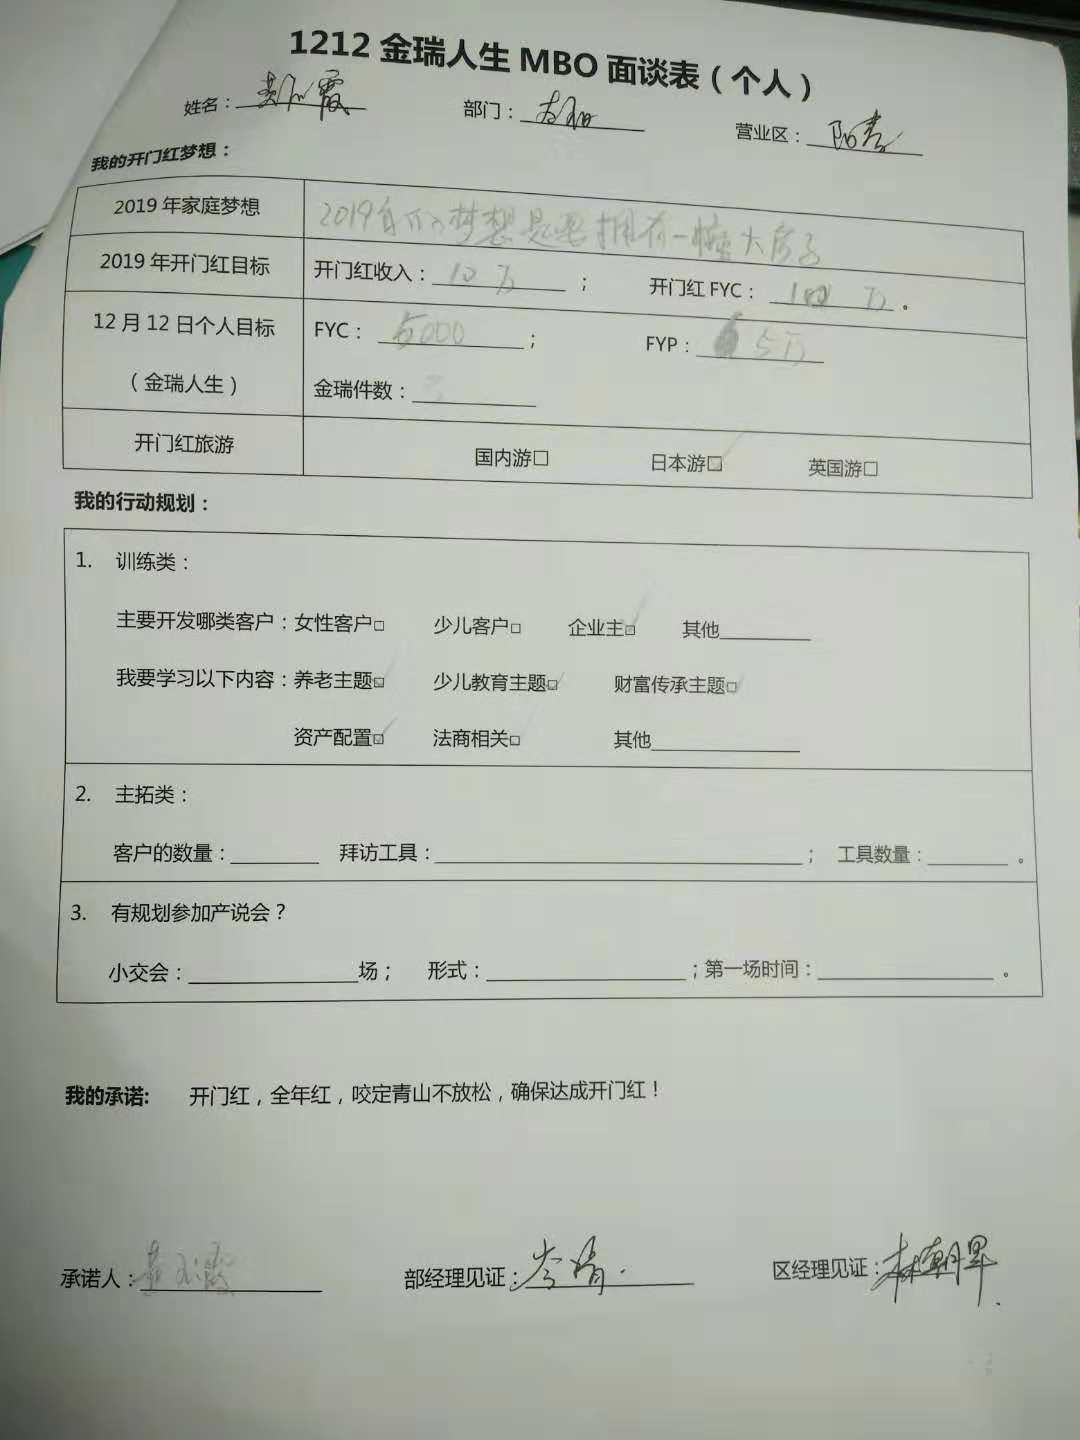 1212 金瑞人生 MBO 面谈表（个人）
姓名： 部门： 营业区：阳春
我的开门红梦想：
2019 年家庭梦想 2019 梦想是要拥有一幢大房子
2019 年开门红目标 开门红收入：10万； 开门红 FYC：100 万。
12 月 12 日个人目标 FYC：5000； FYP：5万
（金瑞人生） 金瑞件数：
开门红旅游 国内游□ 日本游☑ 英国游□
我的行动规划：
1. 训练类：
主要开发哪类客户：女性客户□ 少儿客户□ 企业主☑ 其他
我要学习以下内容：养老主题☑ 少儿教育主题☑ 财富传承主题☑
资产配置☑ 法商相关☑ 其他
2. 主拓类：
客户的数量： 拜访工具： ； 工具数量： 。
3. 有规划参加产说会？
小交会： 场； 形式： ；第一场时间： 。
我的承诺: 开门红，全年红，咬定青山不放松，确保达成开门红！
承诺人： 部经理见证： 区经理见证：林朝旱